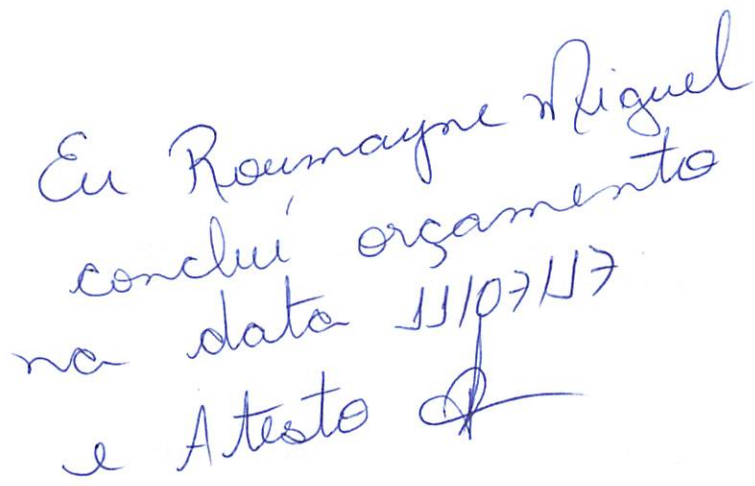 Eu Roumayne Miguel
concluí orçamento
na data 11/07/17
e Atesto